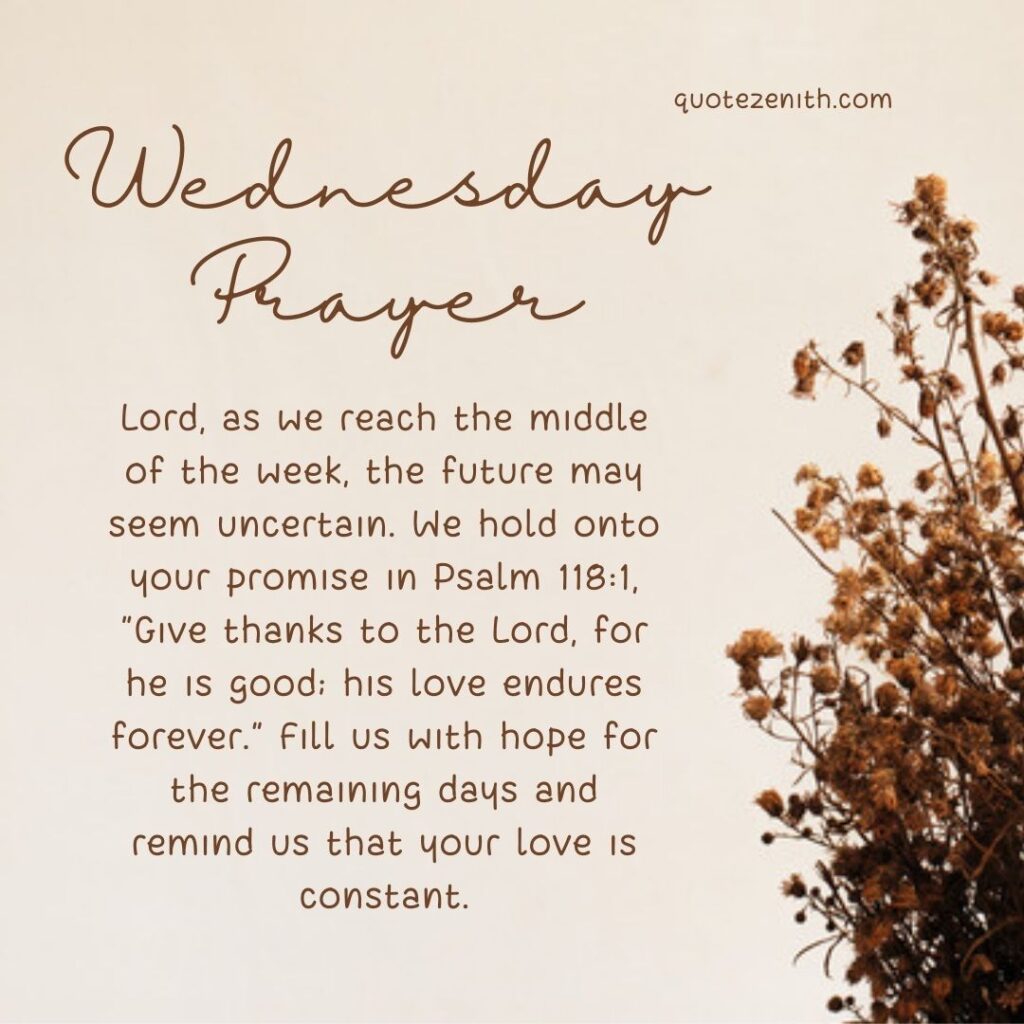 quotezenith.com
Wednesday
Prayer
Lord, as we reach the middle
of the week, the future may
seem uncertain. We hold onto
your promise in Psalm 118:1,
"Give thanks to the Lord, for
he is good; his love endures
forever." Fill us with hope for
the remaining days and
remind us that your love is
constant.